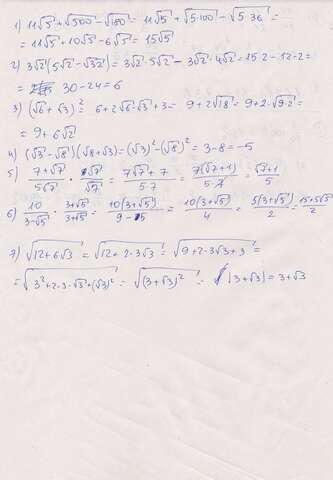 1) 11√5 + √500 - √180 = 11√5 + √5·100 - √5·36 =
= 11√5 + 10√5 - 6√5 = 15√5
2) 3√2(5√2 - √32) = 3√2·5√2 - 3√2·4√2 = 15·2 - 12·2 =
= 30 - 24 = 6
3) (√6 + √3)² = 6 + 2√6·√3 + 3 = 9 + 2√18 = 9 + 2·√9·2 =
= 9 + 6√2
4) (√3 - √8)(√8 + √3) = (√3)² - (√8)² = 3 - 8 = -5
5) (7+√7)/(5√7) · √7/√7 = (7√7 + 7)/(5·7) = 7(√7 + 1)/(5·7) = (√7 + 1)/5
6) 10/(3-√5) · (3+√5)/(3+√5) = 10(3+√5)/(9-5) = 10(3+√5)/4 = 5(3+√5)/2 = (15+5√5)/2
7) √(12+6√3) = √(12+2·3√3) = √(9+2·3√3+3) =
= √(3²+2·3·√3+(√3)²) = √((3+√3)²) = |3+√3| = 3+√3